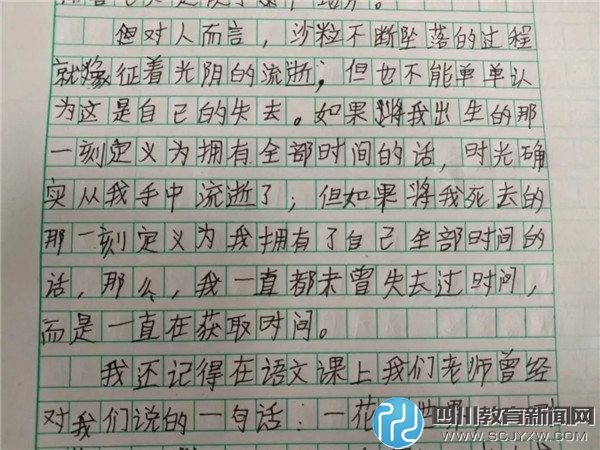 但对人而言，沙粒不断坠落的过程
就像征着光阴的流逝，但也不能单单认
为这是自己的失去。如果将我出生的那
一刻定义为拥有全部时间的话，时光确
实从我手中流逝了；但如果将我死去的
那一刻定义为我拥有了自己全部时间的
话，那么，我一直都未曾失去过时间，
而是一直在获取时间。
我还记得在语文课上我们老师曾经
对我们说的一句话：一花
四川教育新闻网
WWW.SCJYXW.COM